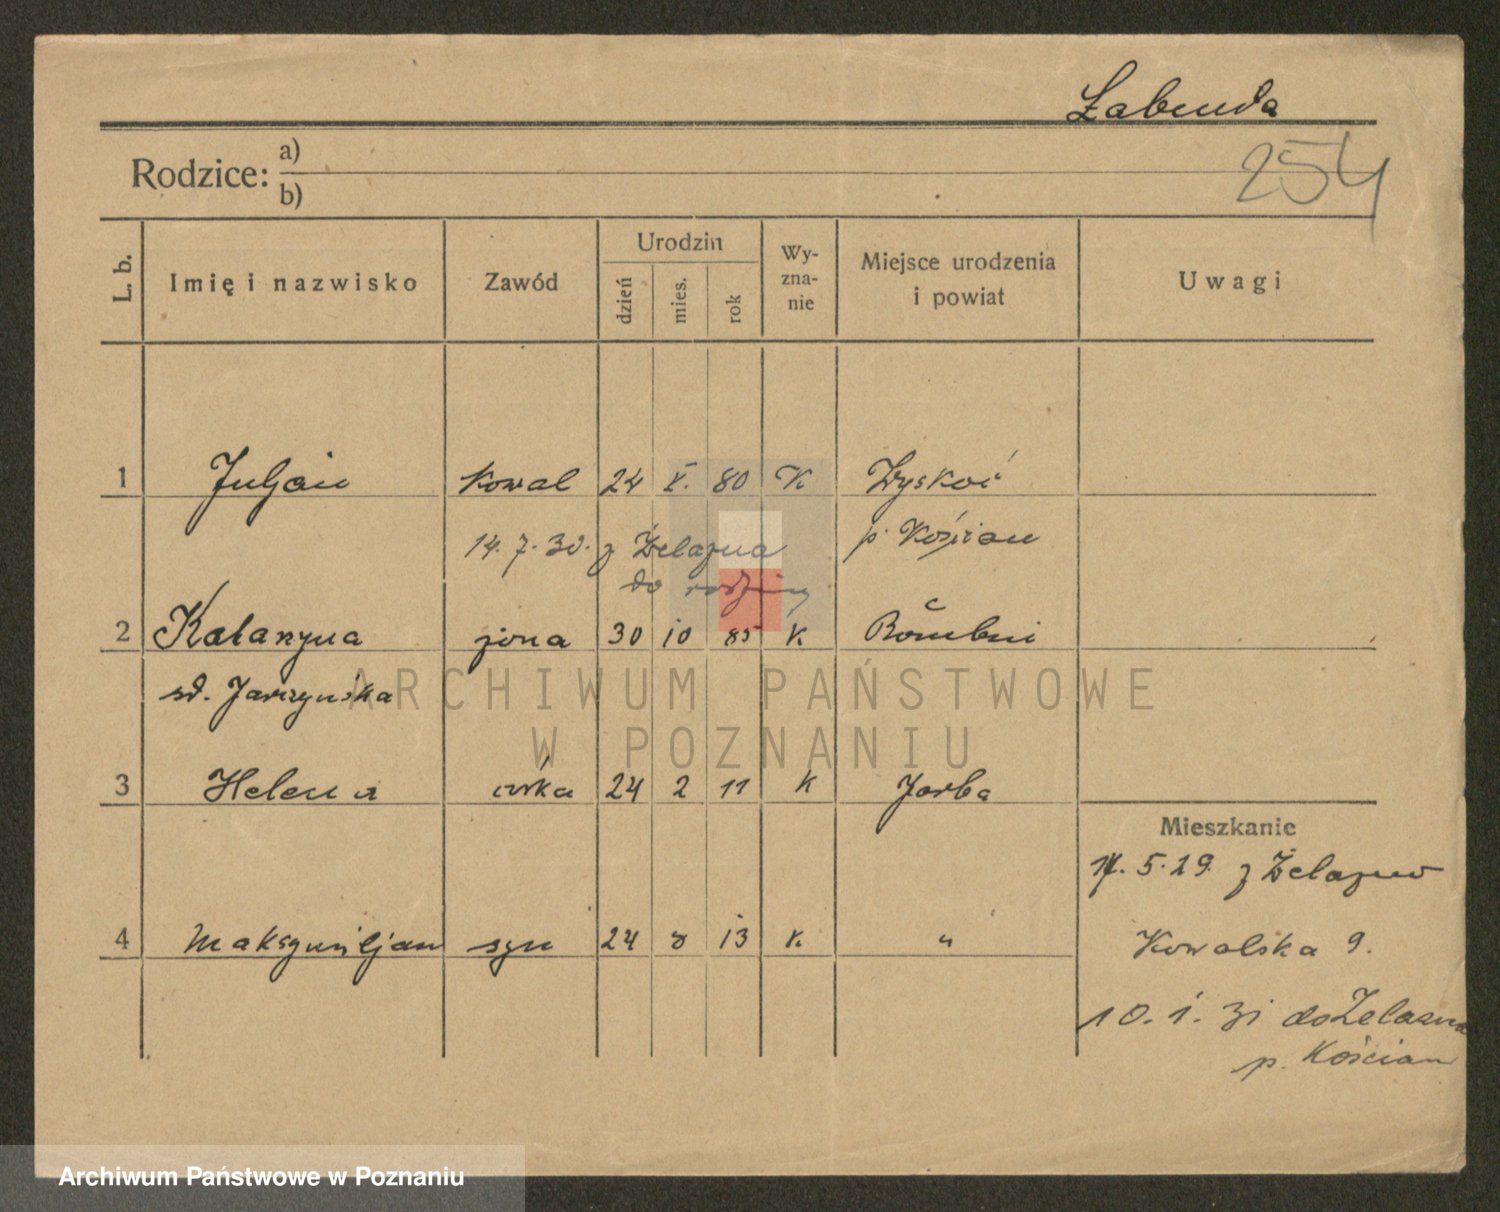 Łabenda
254
Rodzice: a)
b)
L. b.
Imię i nazwisko
Zawód
Urodzin
dzień
mies.
rok
Wy-
zna-
nie
Miejsce urodzenia
i powiat
Uwagi
1 Juljan kowal 24 X. 80 K Wyskoć
14. 7. 30. z Żelazna p. Kościan
do rodziny
2 Katarzyna żona 30 10 85 K
zd. Jarczyńska
3 Helena córka 24 2 11 K Jarba
Mieszkanie
14. 5. 29. z Żelazno
4 Maksymiljan syn 24 8 13 K. "
Kowalska 9.
10. 1. 31 do Żelazna
p. Kościan
ARCHIWUM PAŃSTWOWE
W POZNANIU
Archiwum Państwowe w Poznaniu